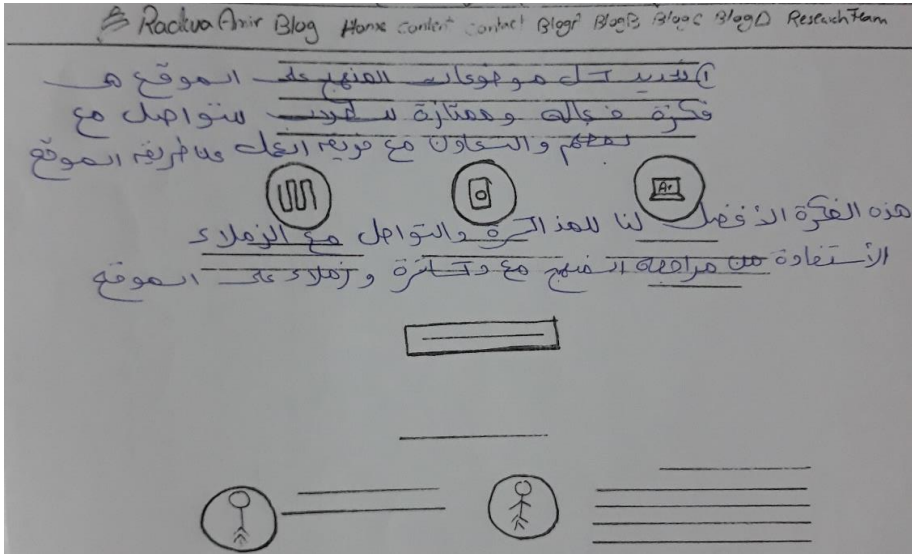 Radwa Amir Blog Home content contact BlogA BlogB BlogC BlogD Research Team
1) تحديد كل موضوعات المنهج على الموقع هى
فكرة فعاله وممتازة للطلاب للتواصل مع
بعضهم والتعاون مع فريق العمل عن طريق الموقع
A+
هذه الفكرة الأفضل لنا للمذاكرة والتواصل مع الزملاء
الأستفادة من مراجعة المنهج مع دكاترة وزملاء على الموقع